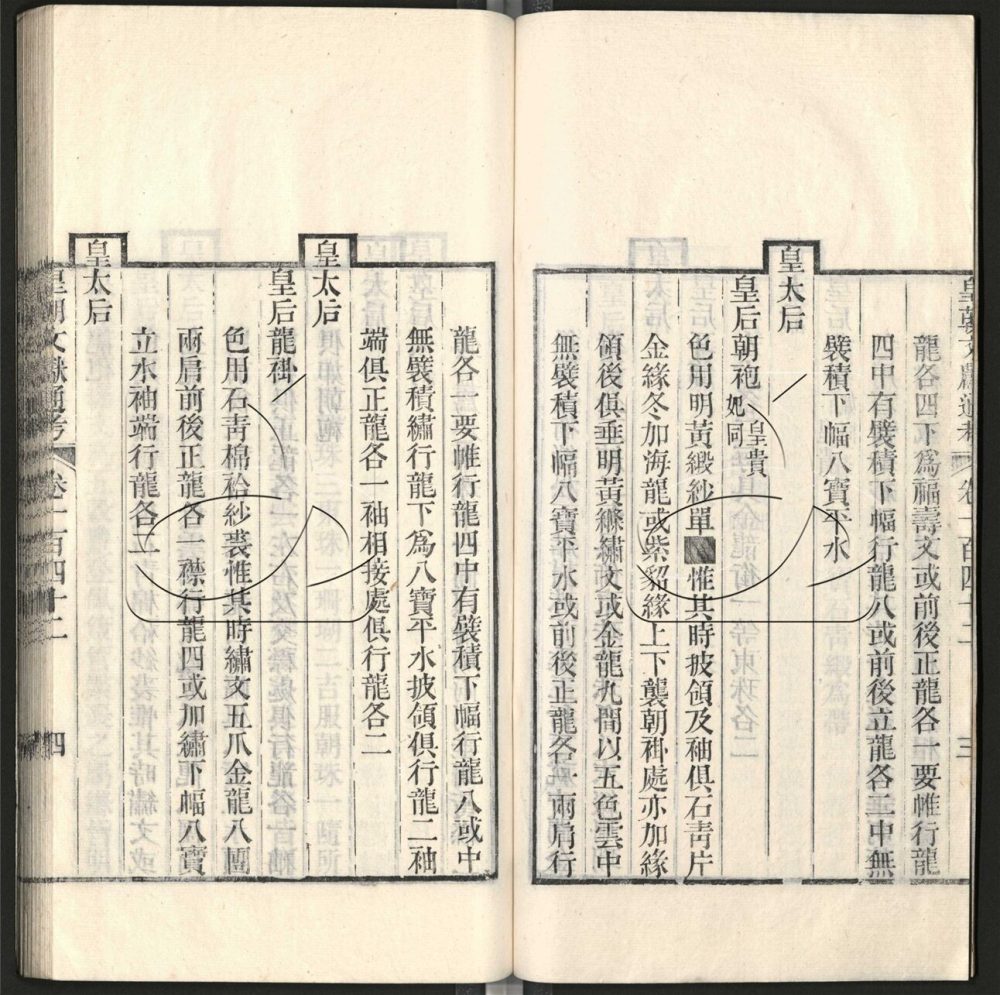 皇朝文獻通考 卷一百四十二 三
龍各四下爲福壽文或前後正龍各一要帷行龍
四中有襞積下幅行龍八或前後立龍各二中無
襞積下幅八寶平水
皇太后
皇后朝袍皇貴妃同
色用明黃緞紗單惟其時披領及袖俱石青片
金緣冬加海龍或紫貂緣上下襲朝褂處亦加緣
領後俱垂明黃縧繡文或金龍九間以五色雲中
無襞積下幅八寶平水或前後正龍各一兩肩行
龍各一要帷行龍四中有襞積下幅行龍八或中
無襞積繡行龍下爲八寶平水披領俱行龍二袖
端俱正龍各一袖相接處俱行龍各二
皇太后
皇后龍褂
色用石青棉袷紗裘惟其時繡文五爪金龍八團
兩肩前後正龍各一襟行龍四或加繡下幅八寶
立水袖端行龍各二
皇太后
皇朝文獻通考 卷一百四十二 四